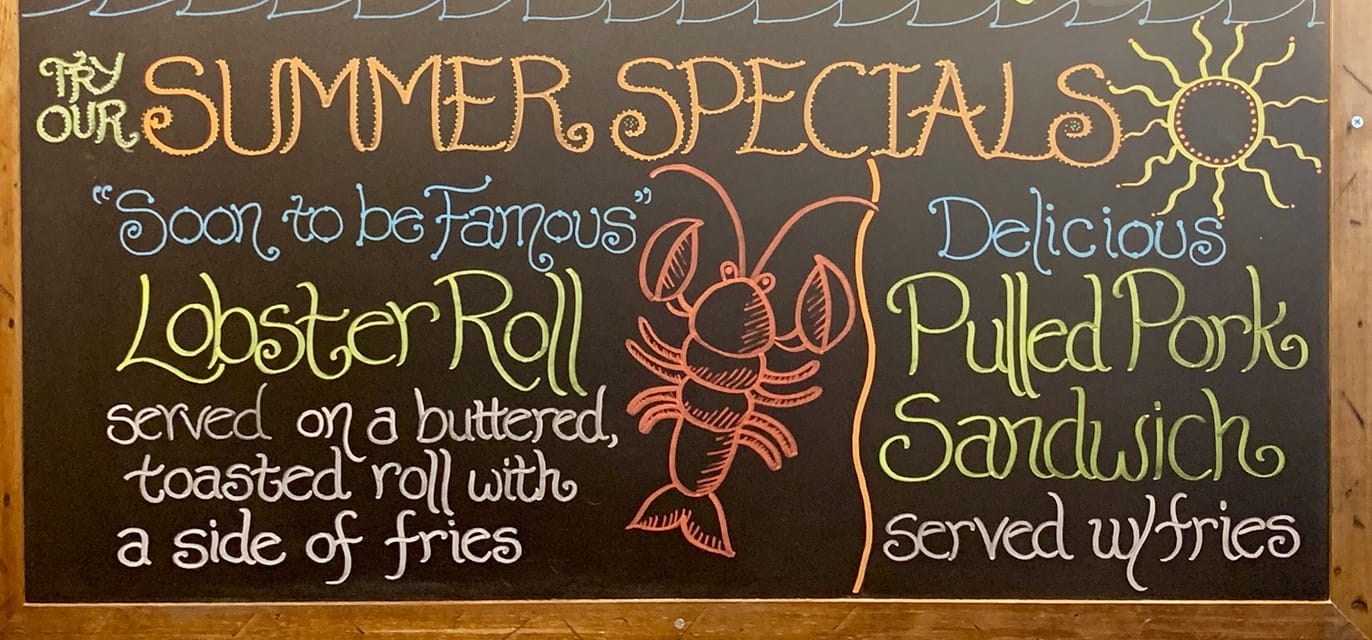 TRY
OUR
SUMMER SPECIALS
"Soon to be Famous"
Lobster Roll
served on a buttered,
toasted roll with
a side of fries
Delicious
Pulled Pork
Sandwich
served w/fries